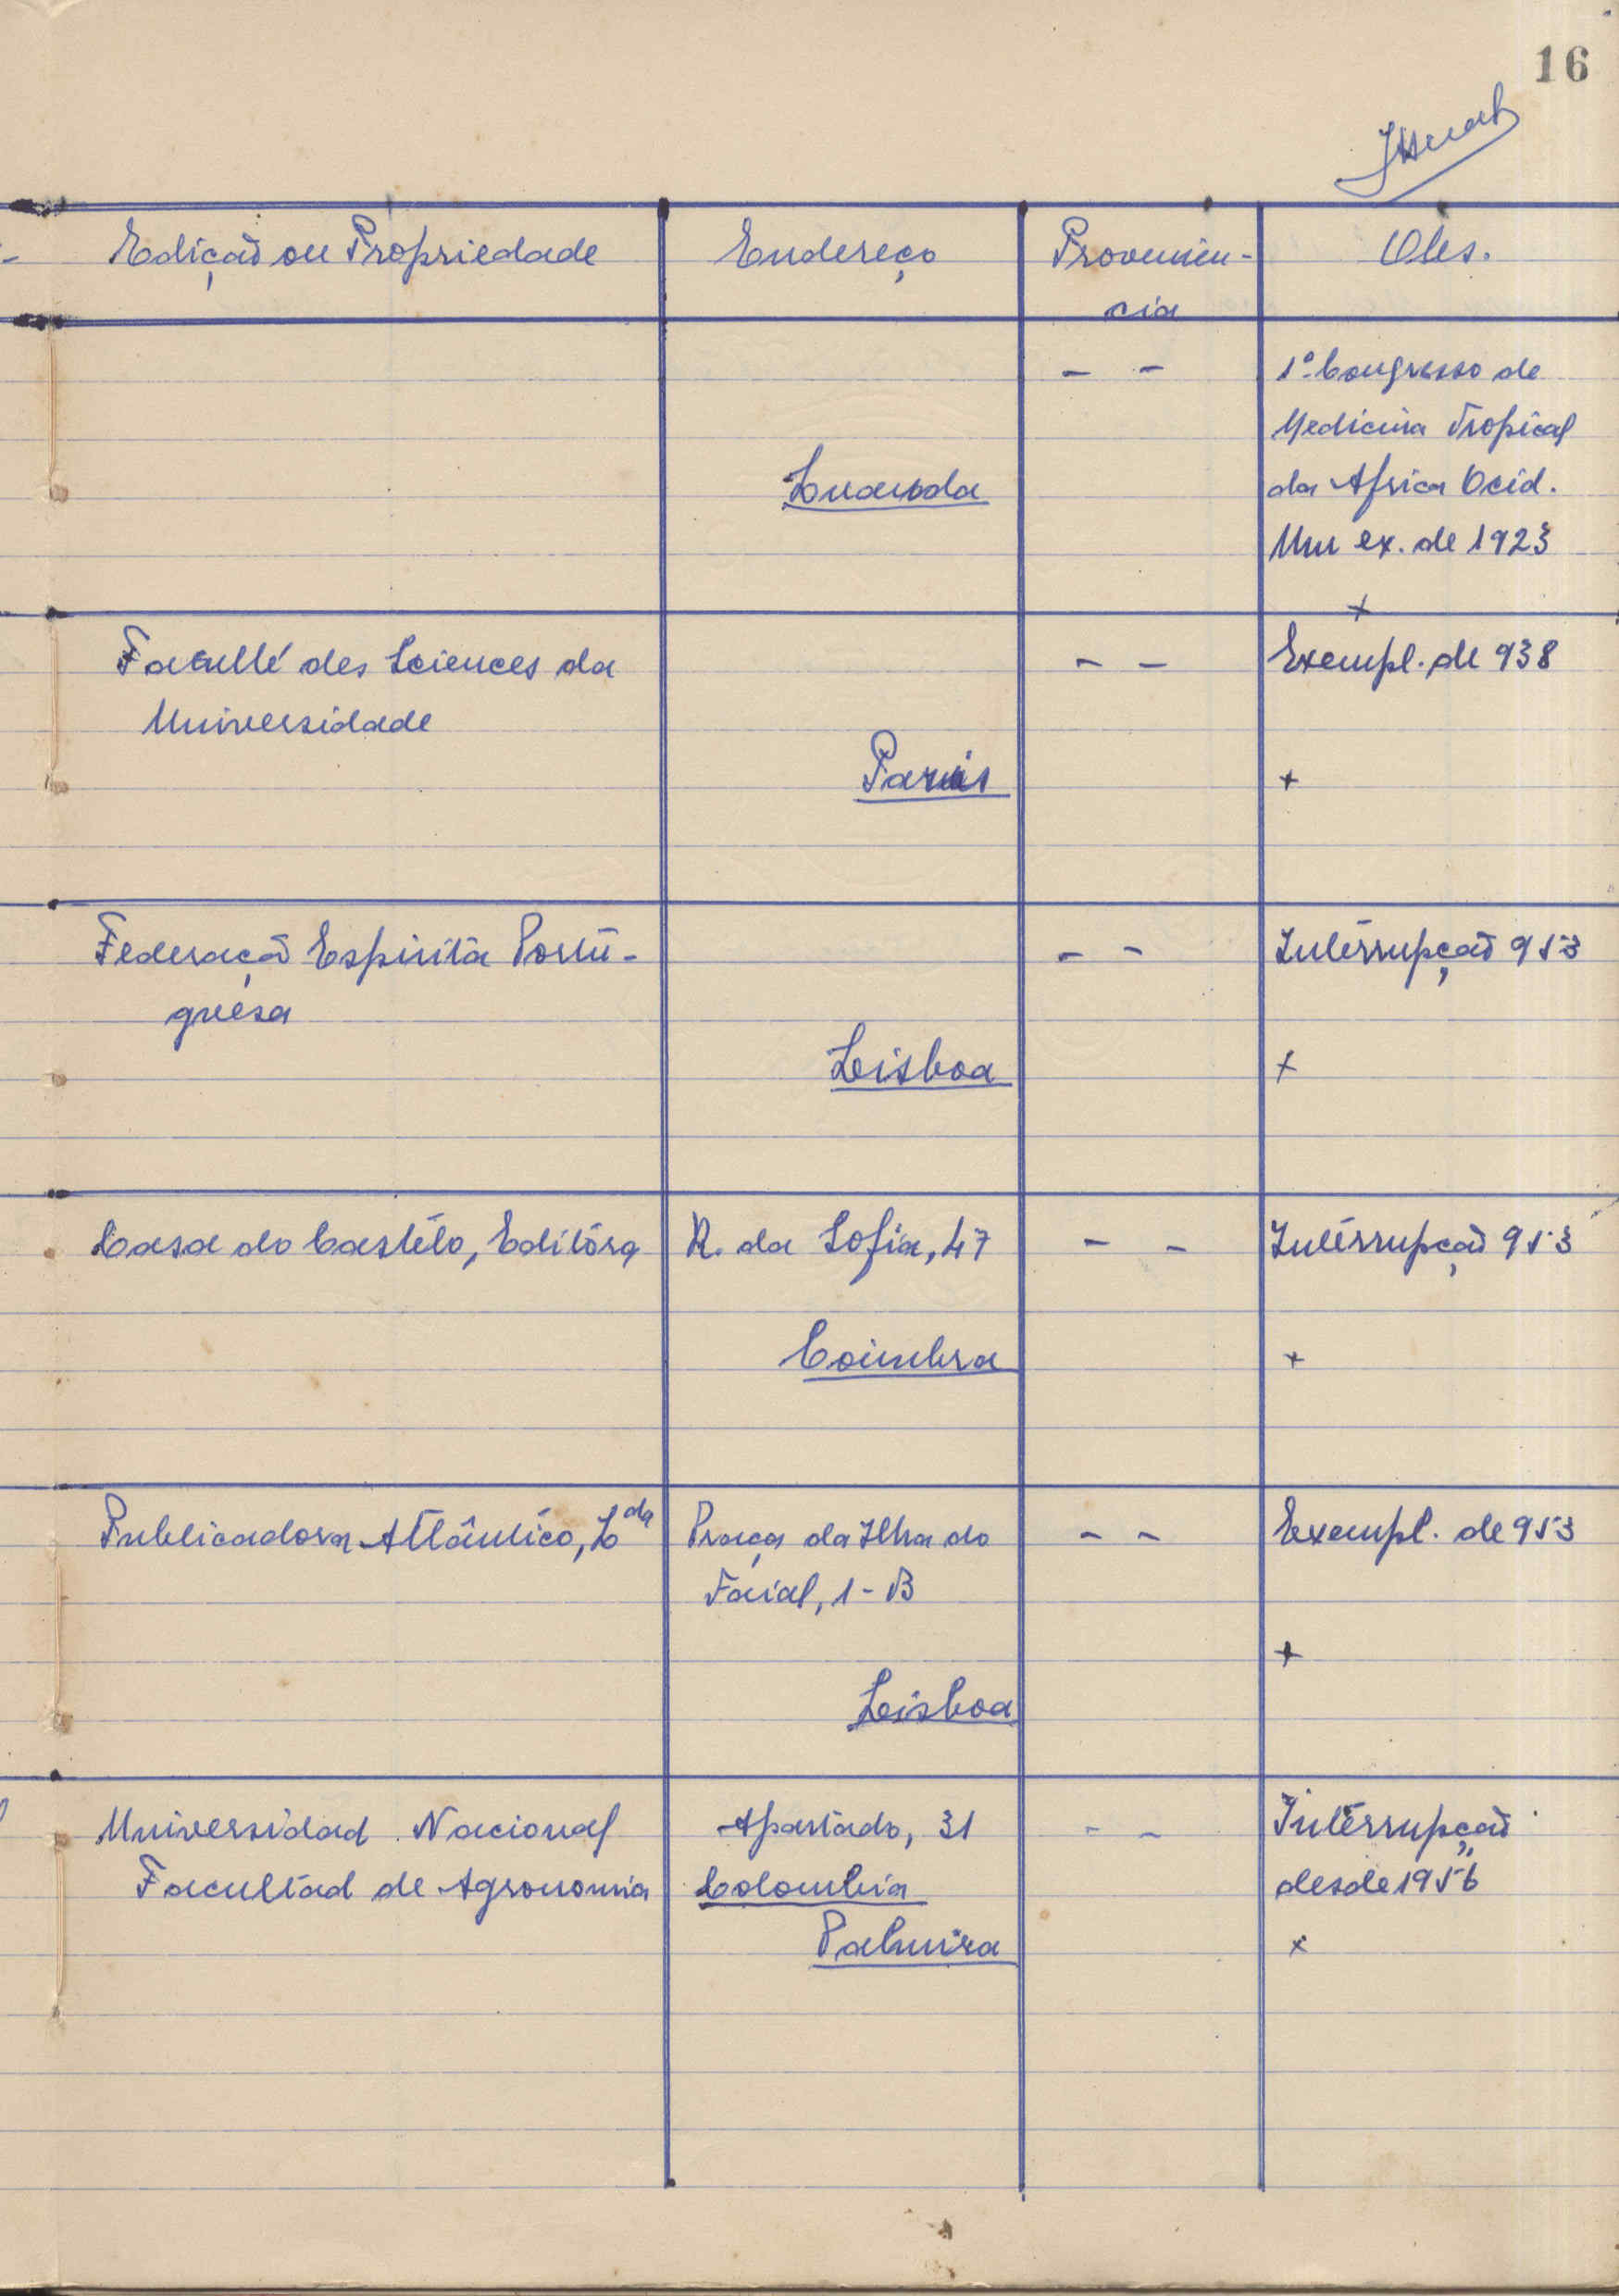 16
Edição ou Propriedade Endereço Proveniên-
cia Obs.
- - 1º Congresso de
Medicina Tropical
Luanda da Africa Ocid.
Um ex. de 1923
+
Faculté des Sciences da - - Exempl. de 938
Universidade
Paris +
Federação Espirita Portu- - - Interrupção 953
guêsa
Lisboa +
Casa do Castélo, Editôra R. da Sofia, 47 - - Interrupção 953
Coimbra +
Publicadora Atlântico, Lda Praça da Ilha do - - Exempl. de 953
Faial, 1-B
+
Lisboa
Universidad Nacional Apartado, 31 - - Interrupção
Facultad de Agronomia Colombia desde 1956
Palmira x